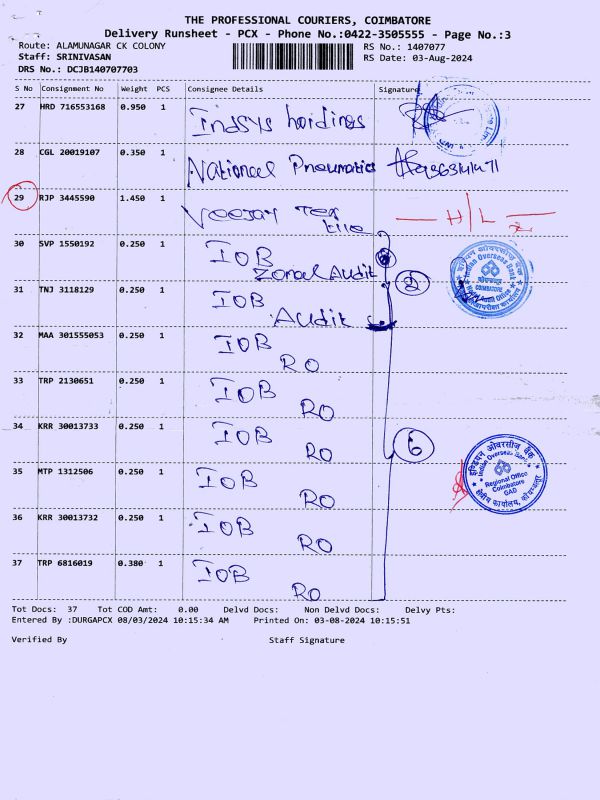 THE PROFESSIONAL COURIERS, COIMBATORE
Delivery Runsheet - PCX - Phone No.:0422-3505555 - Page No.:3
Route: ALAMUNAGAR CK COLONY RS No.: 1407077
Staff: SRINIVASAN RS Date: 03-Aug-2024
DRS No.: DCJB140707703
S No Consignment No Weight PCS Consignee Details Signature
27 HRD 716553168 0.950 1 Indsys holdings
28 CGL 20019107 0.350 1 National Pneumatics
29 RJP 3445590 1.450 1 Veejay Tex
H/L
30 SVP 1550192 0.250 1 IOB
Zonal Audit
2
31 TNJ 3118129 0.250 1 IOB
Audit
Indian Overseas Bank
COIMBATORE
32 MAA 301555053 0.250 1 IOB
RO
33 TRP 2130651 0.250 1 IOB
RO
34 KRR 30013733 0.250 1 IOB
RO
6
35 MTP 1312506 0.250 1 IOB
RO
इण्डियन ओवरसीज़ बैंक
Indian Overseas Bank
Regional Office
Coimbatore
GAD
क्षेत्रीय कार्यालय, कोयम्बतूर
36 KRR 30013732 0.250 1 IOB
RO
37 TRP 6816019 0.380 1 IOB
RO
Tot Docs: 37 Tot COD Amt: 0.00 Delvd Docs: Non Delvd Docs: Delvy Pts:
Entered By :DURGAPCX 08/03/2024 10:15:34 AM Printed On: 03-08-2024 10:15:51
Verified By Staff Signature